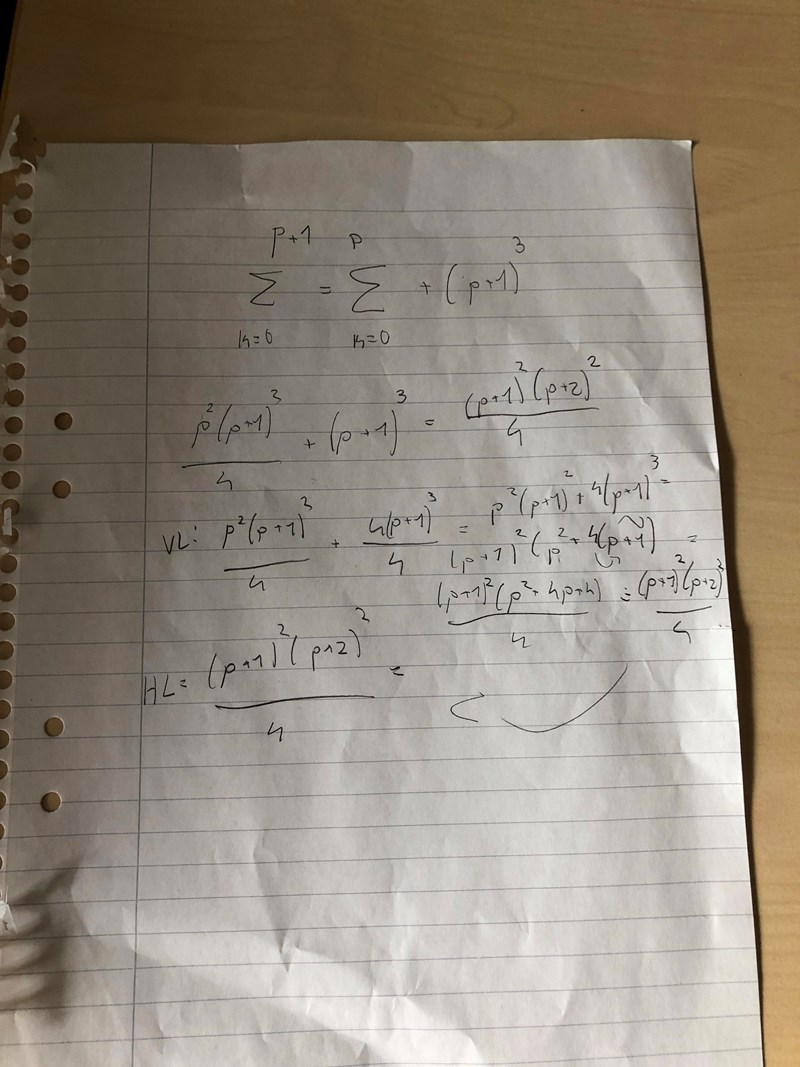 p+1 p
∑ = ∑ + (p+1)³
k=0 k=0
p²(p+1)³/4 + (p+1)³ = (p+1)²(p+2)²/4
VL: p²(p+1)²/4 + 4(p+1)³/4 = p²(p+1)² + 4(p+1)³ =
(p+1)²(p² + 4(p+1)) =
(p+1)²(p² + 4p+4)/4 = (p+1)²(p+2)²/4
HL = (p+1)²(p+2)²/4 =